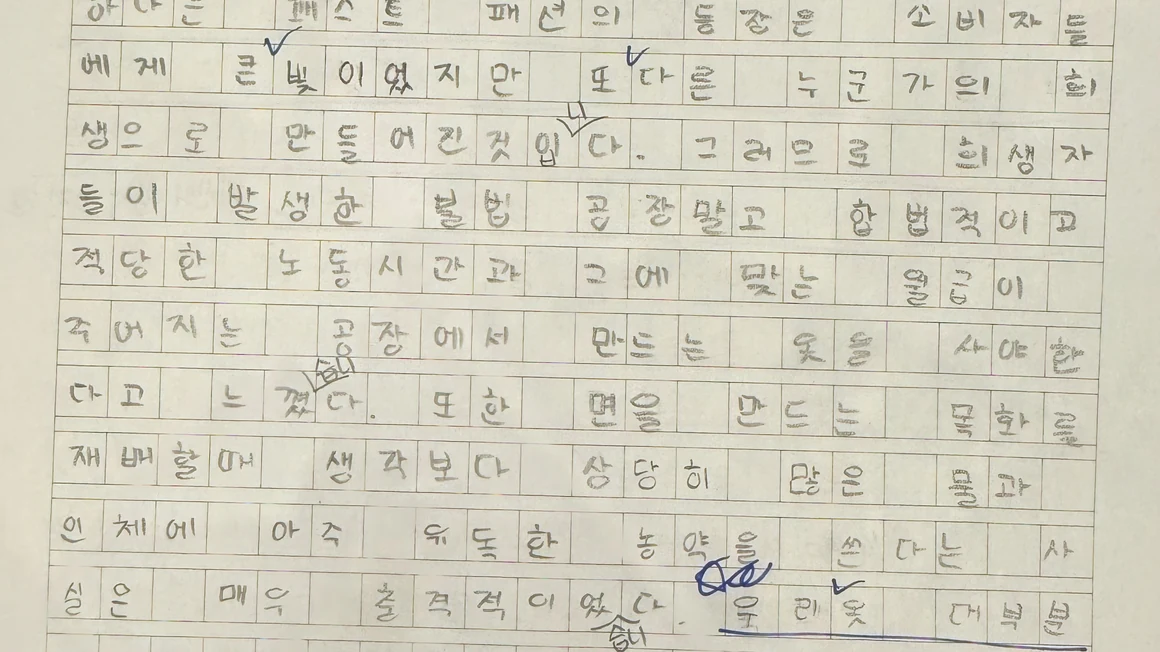 패스트 패션의 등장은 소비자들
에게 큰 빛이었지만 또다른 누군가의 희
니
생으로 만들어진것입다. 그러므로 희생자
들이 발생한 불법 공장말고 합법적이고
적당한 노동시간과 그에 맞는 월급이
주어지는 공장에서 만드는 옷을 사야한
습니
다고 느꼈다. 또한 면을 만드는 목화를
재배할때 생각보다 상당히 많은 물과
인체에 아주 유독한 농약을 쓴다는 사
실은 매우 충격적이었다. 우리옷 대부분
습니